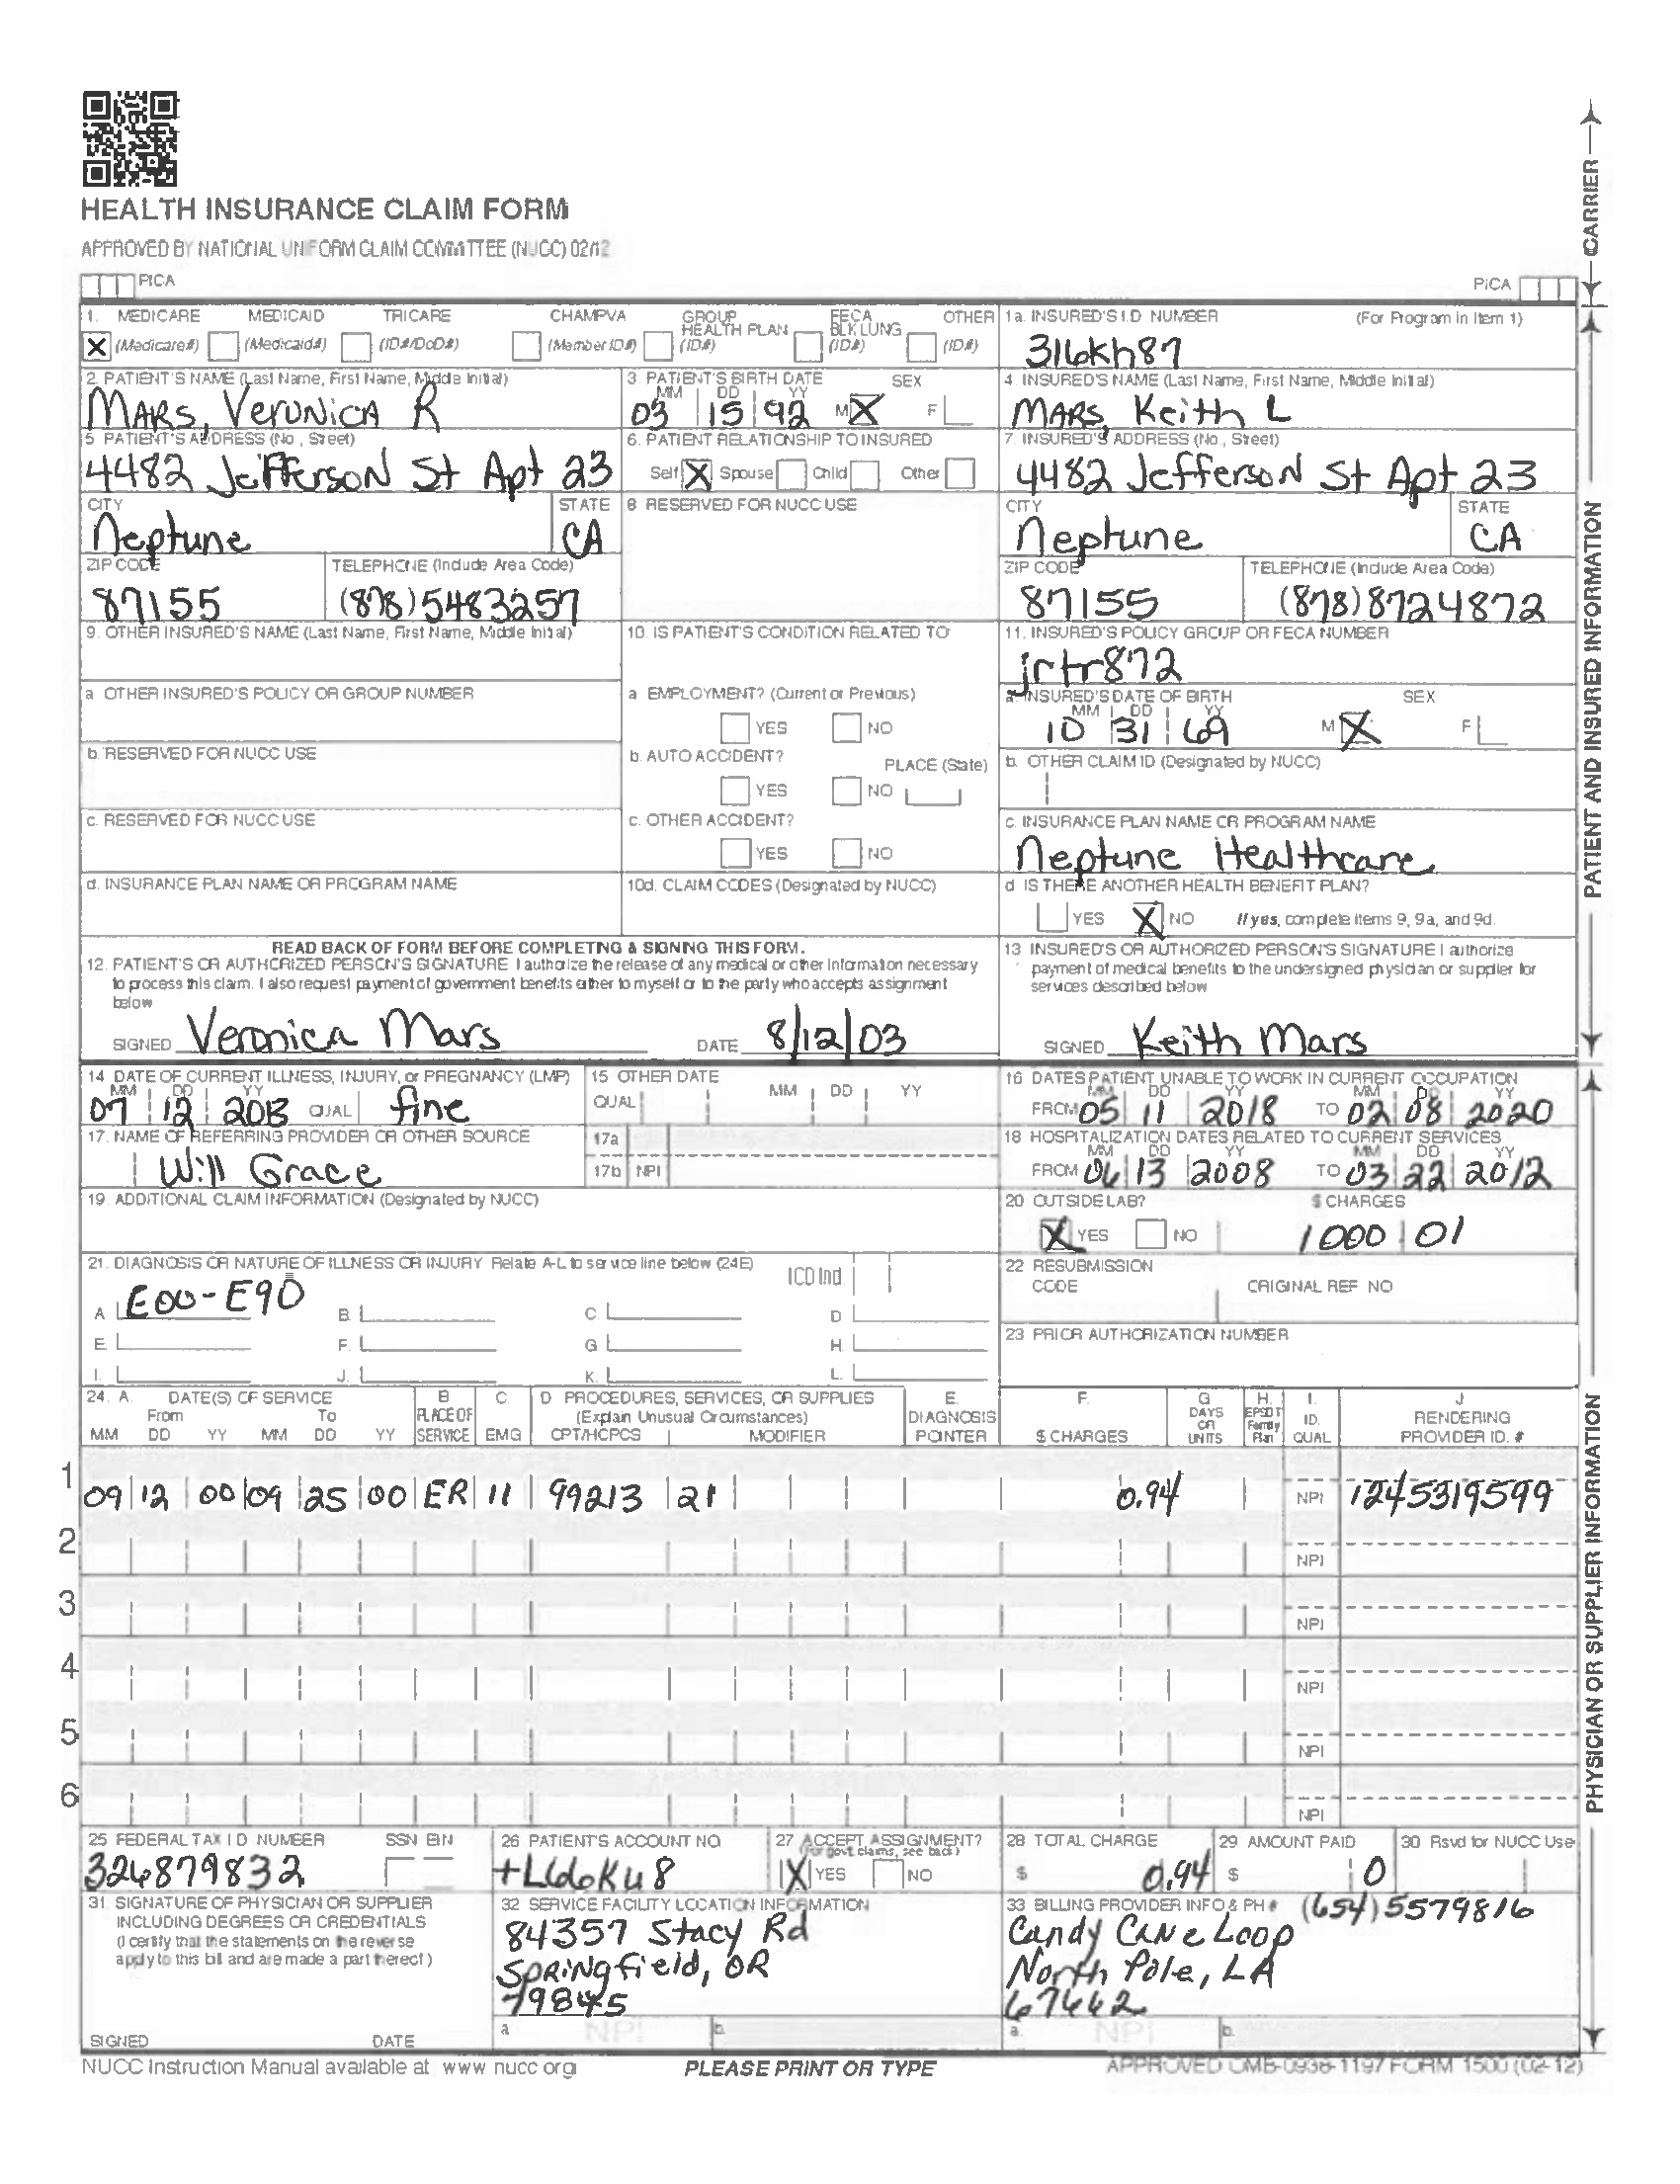 HEALTH INSURANCE CLAIM FORM
APPROVED BY NATIONAL UNIFORM CLAIM COMMITTEE (NUCC) 02/12
PICA PICA
CARRIER
1. MEDICARE MEDICAID TRICARE CHAMPVA GROUP HEALTH PLAN FECA BLK LUNG OTHER
X (Medicare#) (Medicaid#) (ID#/DoD#) (Member ID#) (ID#) (ID#) (ID#)
1a. INSURED'S I.D. NUMBER (For Program in Item 1)
316kh87
2. PATIENT'S NAME (Last Name, First Name, Middle Initial)
MARS, VERONICA R
3. PATIENT'S BIRTH DATE SEX
MM DD YY
03 15 92 M X F
4. INSURED'S NAME (Last Name, First Name, Middle Initial)
MARS, Keith L
5. PATIENT'S ADDRESS (No., Street)
4482 Jefferson St Apt 23
6. PATIENT RELATIONSHIP TO INSURED
Self X Spouse Child Other
7. INSURED'S ADDRESS (No., Street)
4482 Jefferson St Apt 23
CITY STATE
Neptune CA
8. RESERVED FOR NUCC USE
CITY STATE
Neptune CA
ZIP CODE TELEPHONE (Include Area Code)
87155 (878) 5483257
ZIP CODE TELEPHONE (Include Area Code)
87155 (878) 8724872
9. OTHER INSURED'S NAME (Last Name, First Name, Middle Initial)
10. IS PATIENT'S CONDITION RELATED TO
11. INSURED'S POLICY GROUP OR FECA NUMBER
jrtr872
a. OTHER INSURED'S POLICY OR GROUP NUMBER
a. EMPLOYMENT? (Current or Previous)
YES NO
a. INSURED'S DATE OF BIRTH SEX
MM DD YY
10 31 69 M X F
b. RESERVED FOR NUCC USE
b. AUTO ACCIDENT? PLACE (State)
YES NO
b. OTHER CLAIM ID (Designated by NUCC)
c. RESERVED FOR NUCC USE
c. OTHER ACCIDENT?
YES NO
c. INSURANCE PLAN NAME OR PROGRAM NAME
Neptune Healthcare
d. INSURANCE PLAN NAME OR PROGRAM NAME
10d. CLAIM CODES (Designated by NUCC)
d. IS THERE ANOTHER HEALTH BENEFIT PLAN?
YES X NO If yes, complete items 9, 9a, and 9d.
PATIENT AND INSURED INFORMATION
READ BACK OF FORM BEFORE COMPLETING & SIGNING THIS FORM.
12. PATIENT'S OR AUTHORIZED PERSON'S SIGNATURE I authorize the release of any medical or other information necessary
to process this claim. I also request payment of government benefits either to myself or to the party who accepts assignment
below
SIGNED Veronica Mars DATE 8/12/03
13. INSURED'S OR AUTHORIZED PERSON'S SIGNATURE I authorize
payment of medical benefits to the undersigned physician or supplier for
services described below
SIGNED Keith Mars
14. DATE OF CURRENT ILLNESS, INJURY, or PREGNANCY (LMP)
MM DD YY
07 12 2013 QUAL fine
15. OTHER DATE
QUAL MM DD YY
16. DATES PATIENT UNABLE TO WORK IN CURRENT OCCUPATION
MM DD YY MM DD YY
FROM 05 11 2018 TO 02 08 2020
17. NAME OF REFERRING PROVIDER OR OTHER SOURCE
Will Grace
17a
17b NPI
18. HOSPITALIZATION DATES RELATED TO CURRENT SERVICES
MM DD YY MM DD YY
FROM 06 13 2008 TO 03 22 2012
19. ADDITIONAL CLAIM INFORMATION (Designated by NUCC)
20. OUTSIDE LAB? $ CHARGES
X YES NO 1000 01
21. DIAGNOSIS OR NATURE OF ILLNESS OR INJURY Relate A-L to service line below (24E)
ICD Ind
A. E00-E90 B. C. D.
E. F. G. H.
I. J. K. L.
22. RESUBMISSION
CODE ORIGINAL REF NO
23. PRIOR AUTHORIZATION NUMBER
24. A. DATE(S) OF SERVICE B. C. D. PROCEDURES, SERVICES, OR SUPPLIES E. F. G. H. I. J.
From To PLACE OF (Explain Unusual Circumstances) DIAGNOSIS DAYS OR EPSDT Family ID. RENDERING
MM DD YY MM DD YY SERVICE EMG CPT/HCPCS MODIFIER POINTER $ CHARGES UNITS Plan QUAL PROVIDER ID. #
1 09 12 00 09 25 00 ER 11 99213 21 0.94 NPI 1245319599
2 NPI
3 NPI
4 NPI
5 NPI
6 NPI
PHYSICIAN OR SUPPLIER INFORMATION
25. FEDERAL TAX I.D. NUMBER SSN EIN
326879832
26. PATIENT'S ACCOUNT NO.
+L66Ku8
27. ACCEPT ASSIGNMENT?
(For govt. claims, see back)
X YES NO
28. TOTAL CHARGE
$ 0.94
29. AMOUNT PAID
$ 0
30. Rsvd for NUCC Use
31. SIGNATURE OF PHYSICIAN OR SUPPLIER
INCLUDING DEGREES OR CREDENTIALS
(I certify that the statements on the reverse
apply to this bill and are made a part thereof.)
SIGNED DATE
32. SERVICE FACILITY LOCATION INFORMATION
84357 Stacy Rd
Springfield, OR
79845
a. NPI b.
33. BILLING PROVIDER INFO & PH # (654) 5579816
Candy Cane Loop
North Pole, LA
67442
a. NPI b.
NUCC Instruction Manual available at www.nucc.org
PLEASE PRINT OR TYPE
APPROVED OMB-0938-1197 FORM 1500 (02-12)